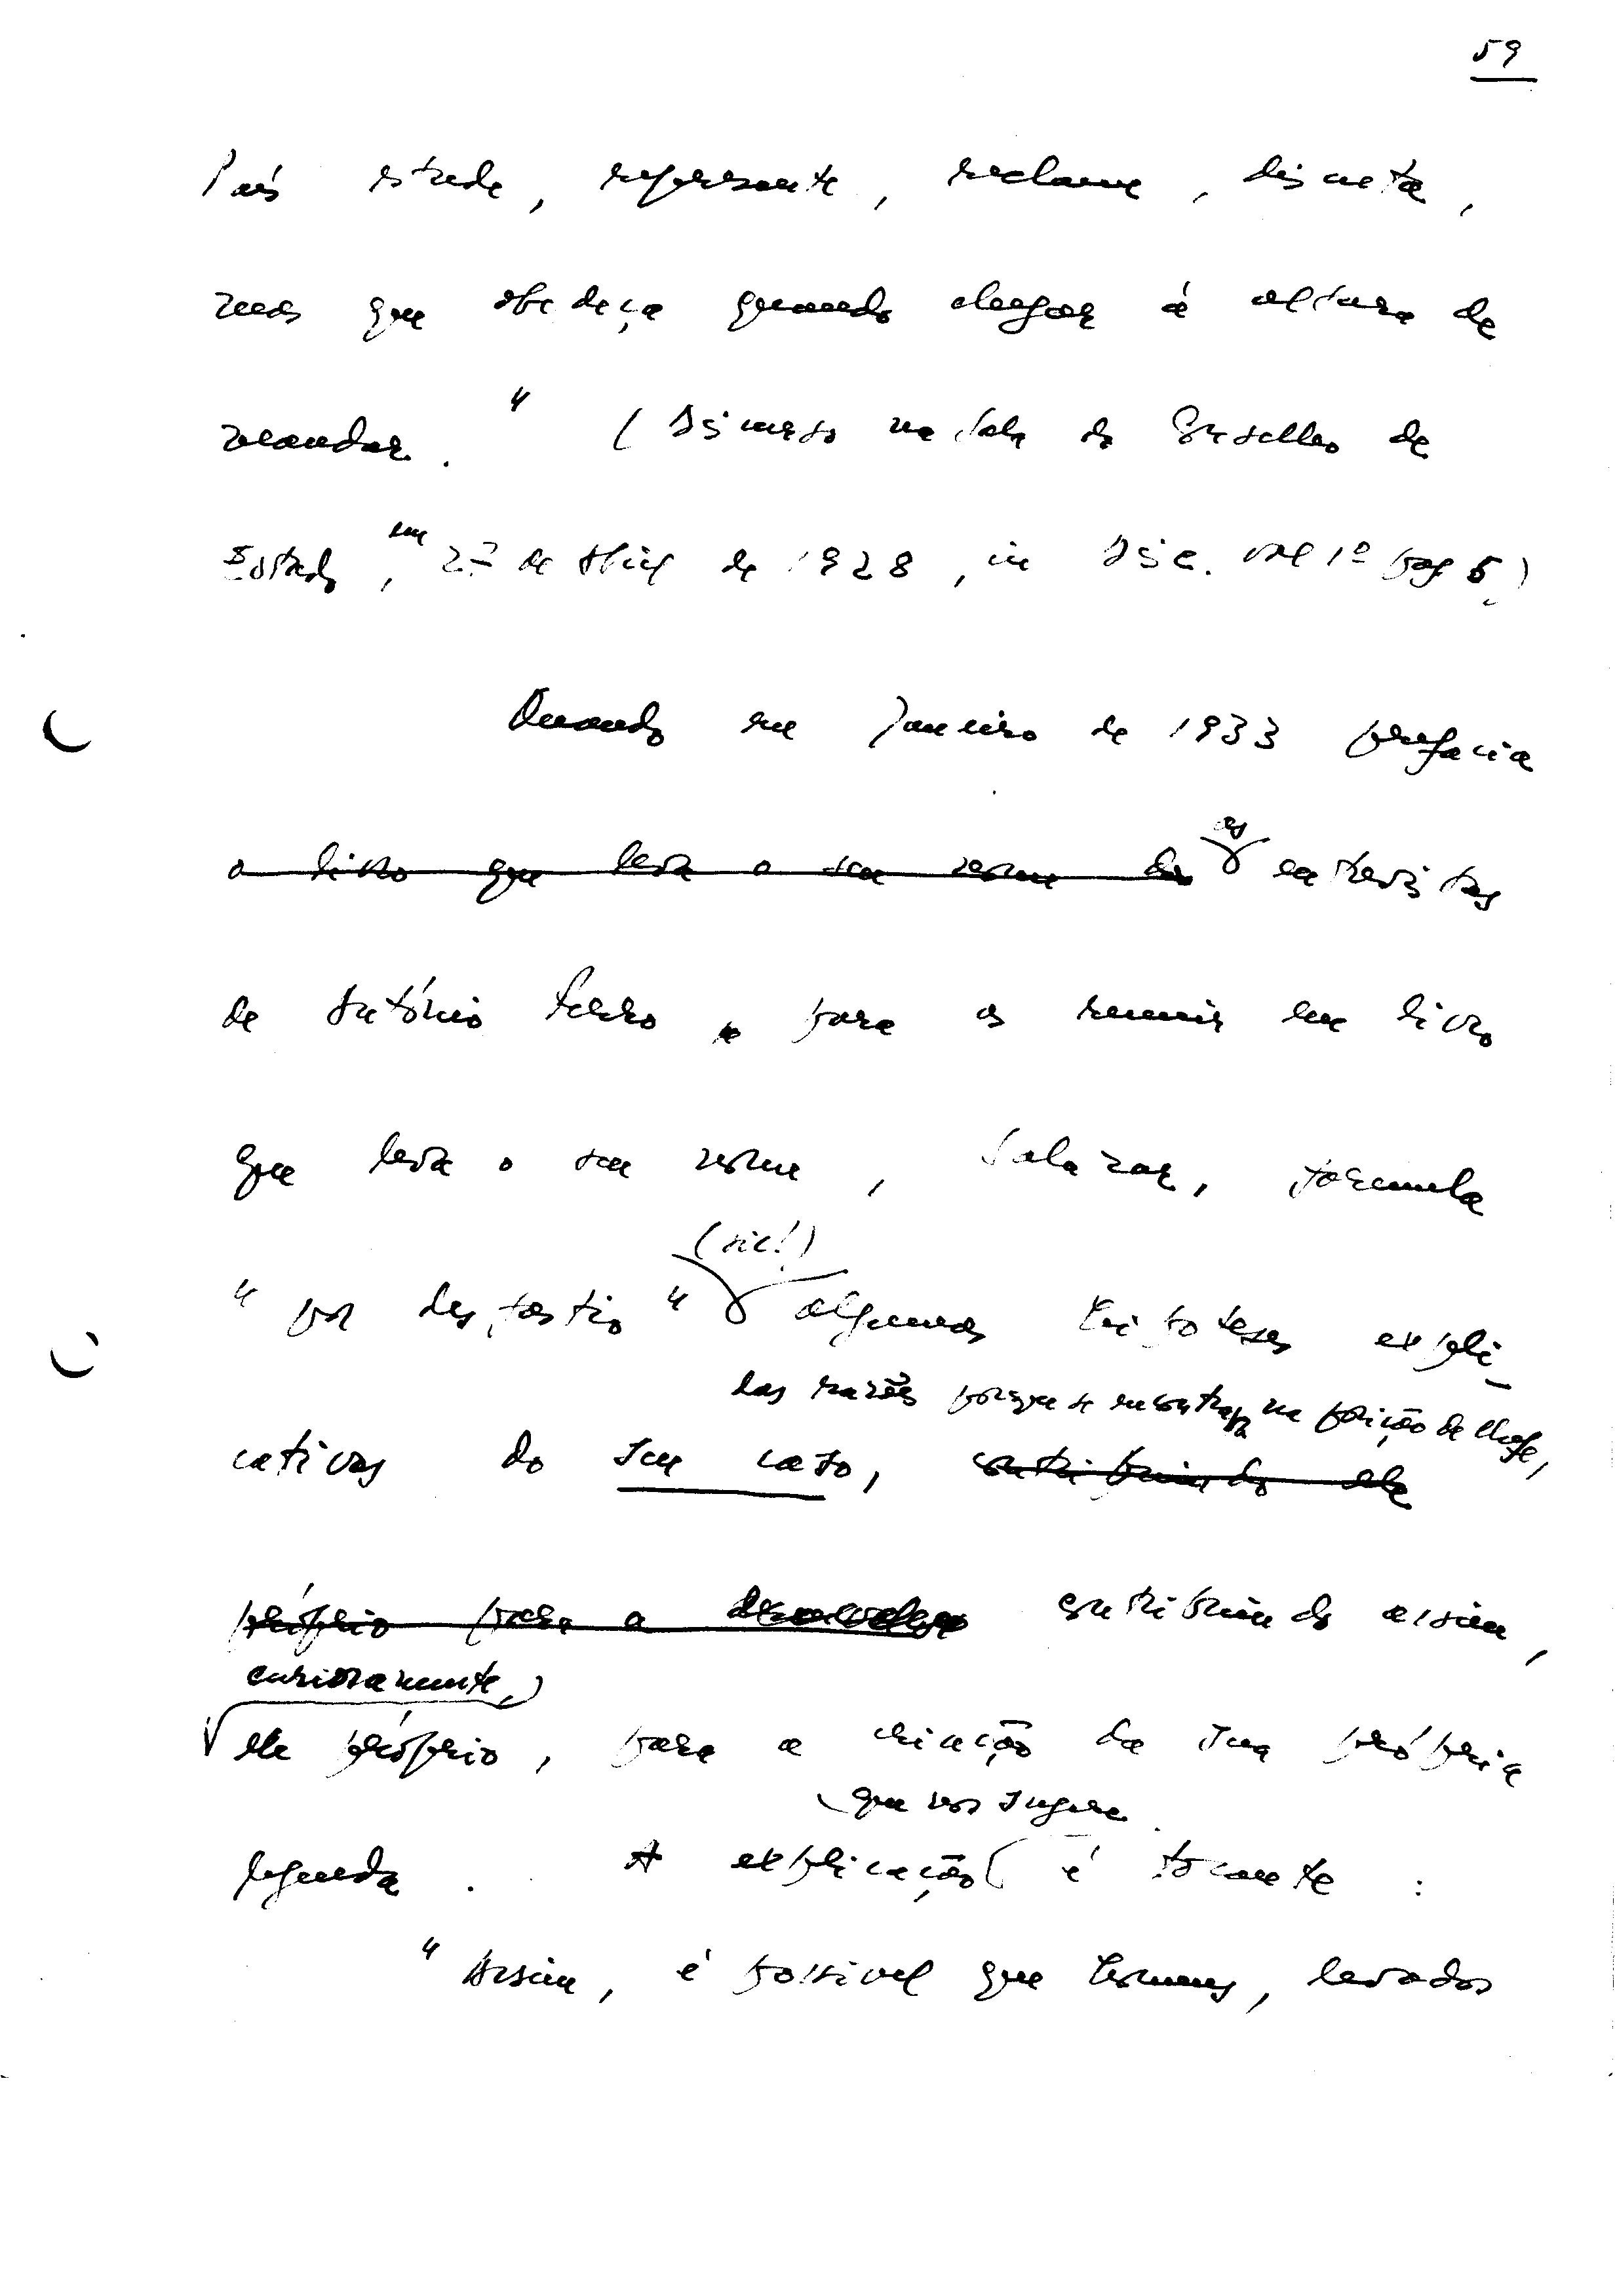 59
País estude, represente, reclame, discuta,
mas que obedeça quando chegar à altura de
mandar." (Discurso na Sala do Conselho de
Estado, em 27 de Abril de 1928, in Disc. vol 1º pag 5)
Quando em Janeiro de 1933 prefacia
o livro que leva o seu nome das as entrevistas
de António Ferro para as reunir em livro
que leva o seu nome, Salazar, formula
(sic!)
"por desfastio" algumas hipóteses expli-
das razões porque se encontrava na posição de chefe,
cativas do seu caso, contribuindo ele
próprio para a contribuindo assim,
curiosamente,
ele próprio, para a criação da sua própria
que nos sugere
legenda. A explicação é tocante:
"Assim, é possível que homens, levados